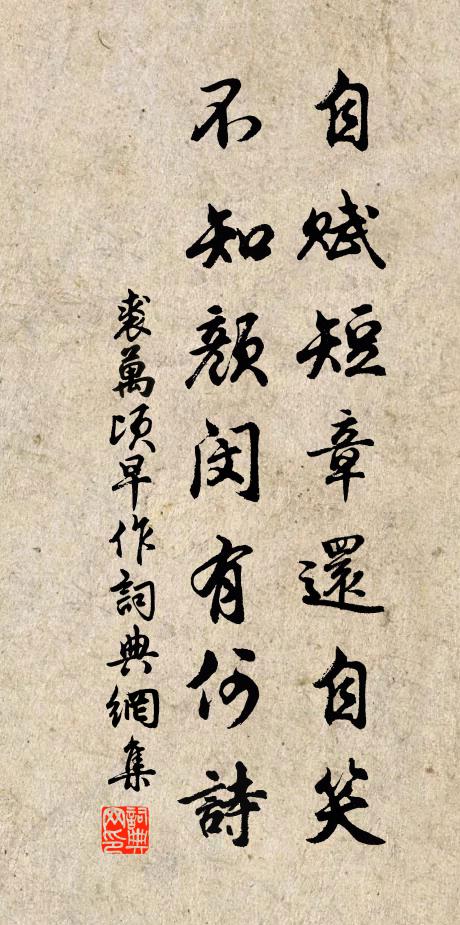 自賦短章還自笑
不知顏閔有何詩
裘萬頃早作詞典網集
詞典網印